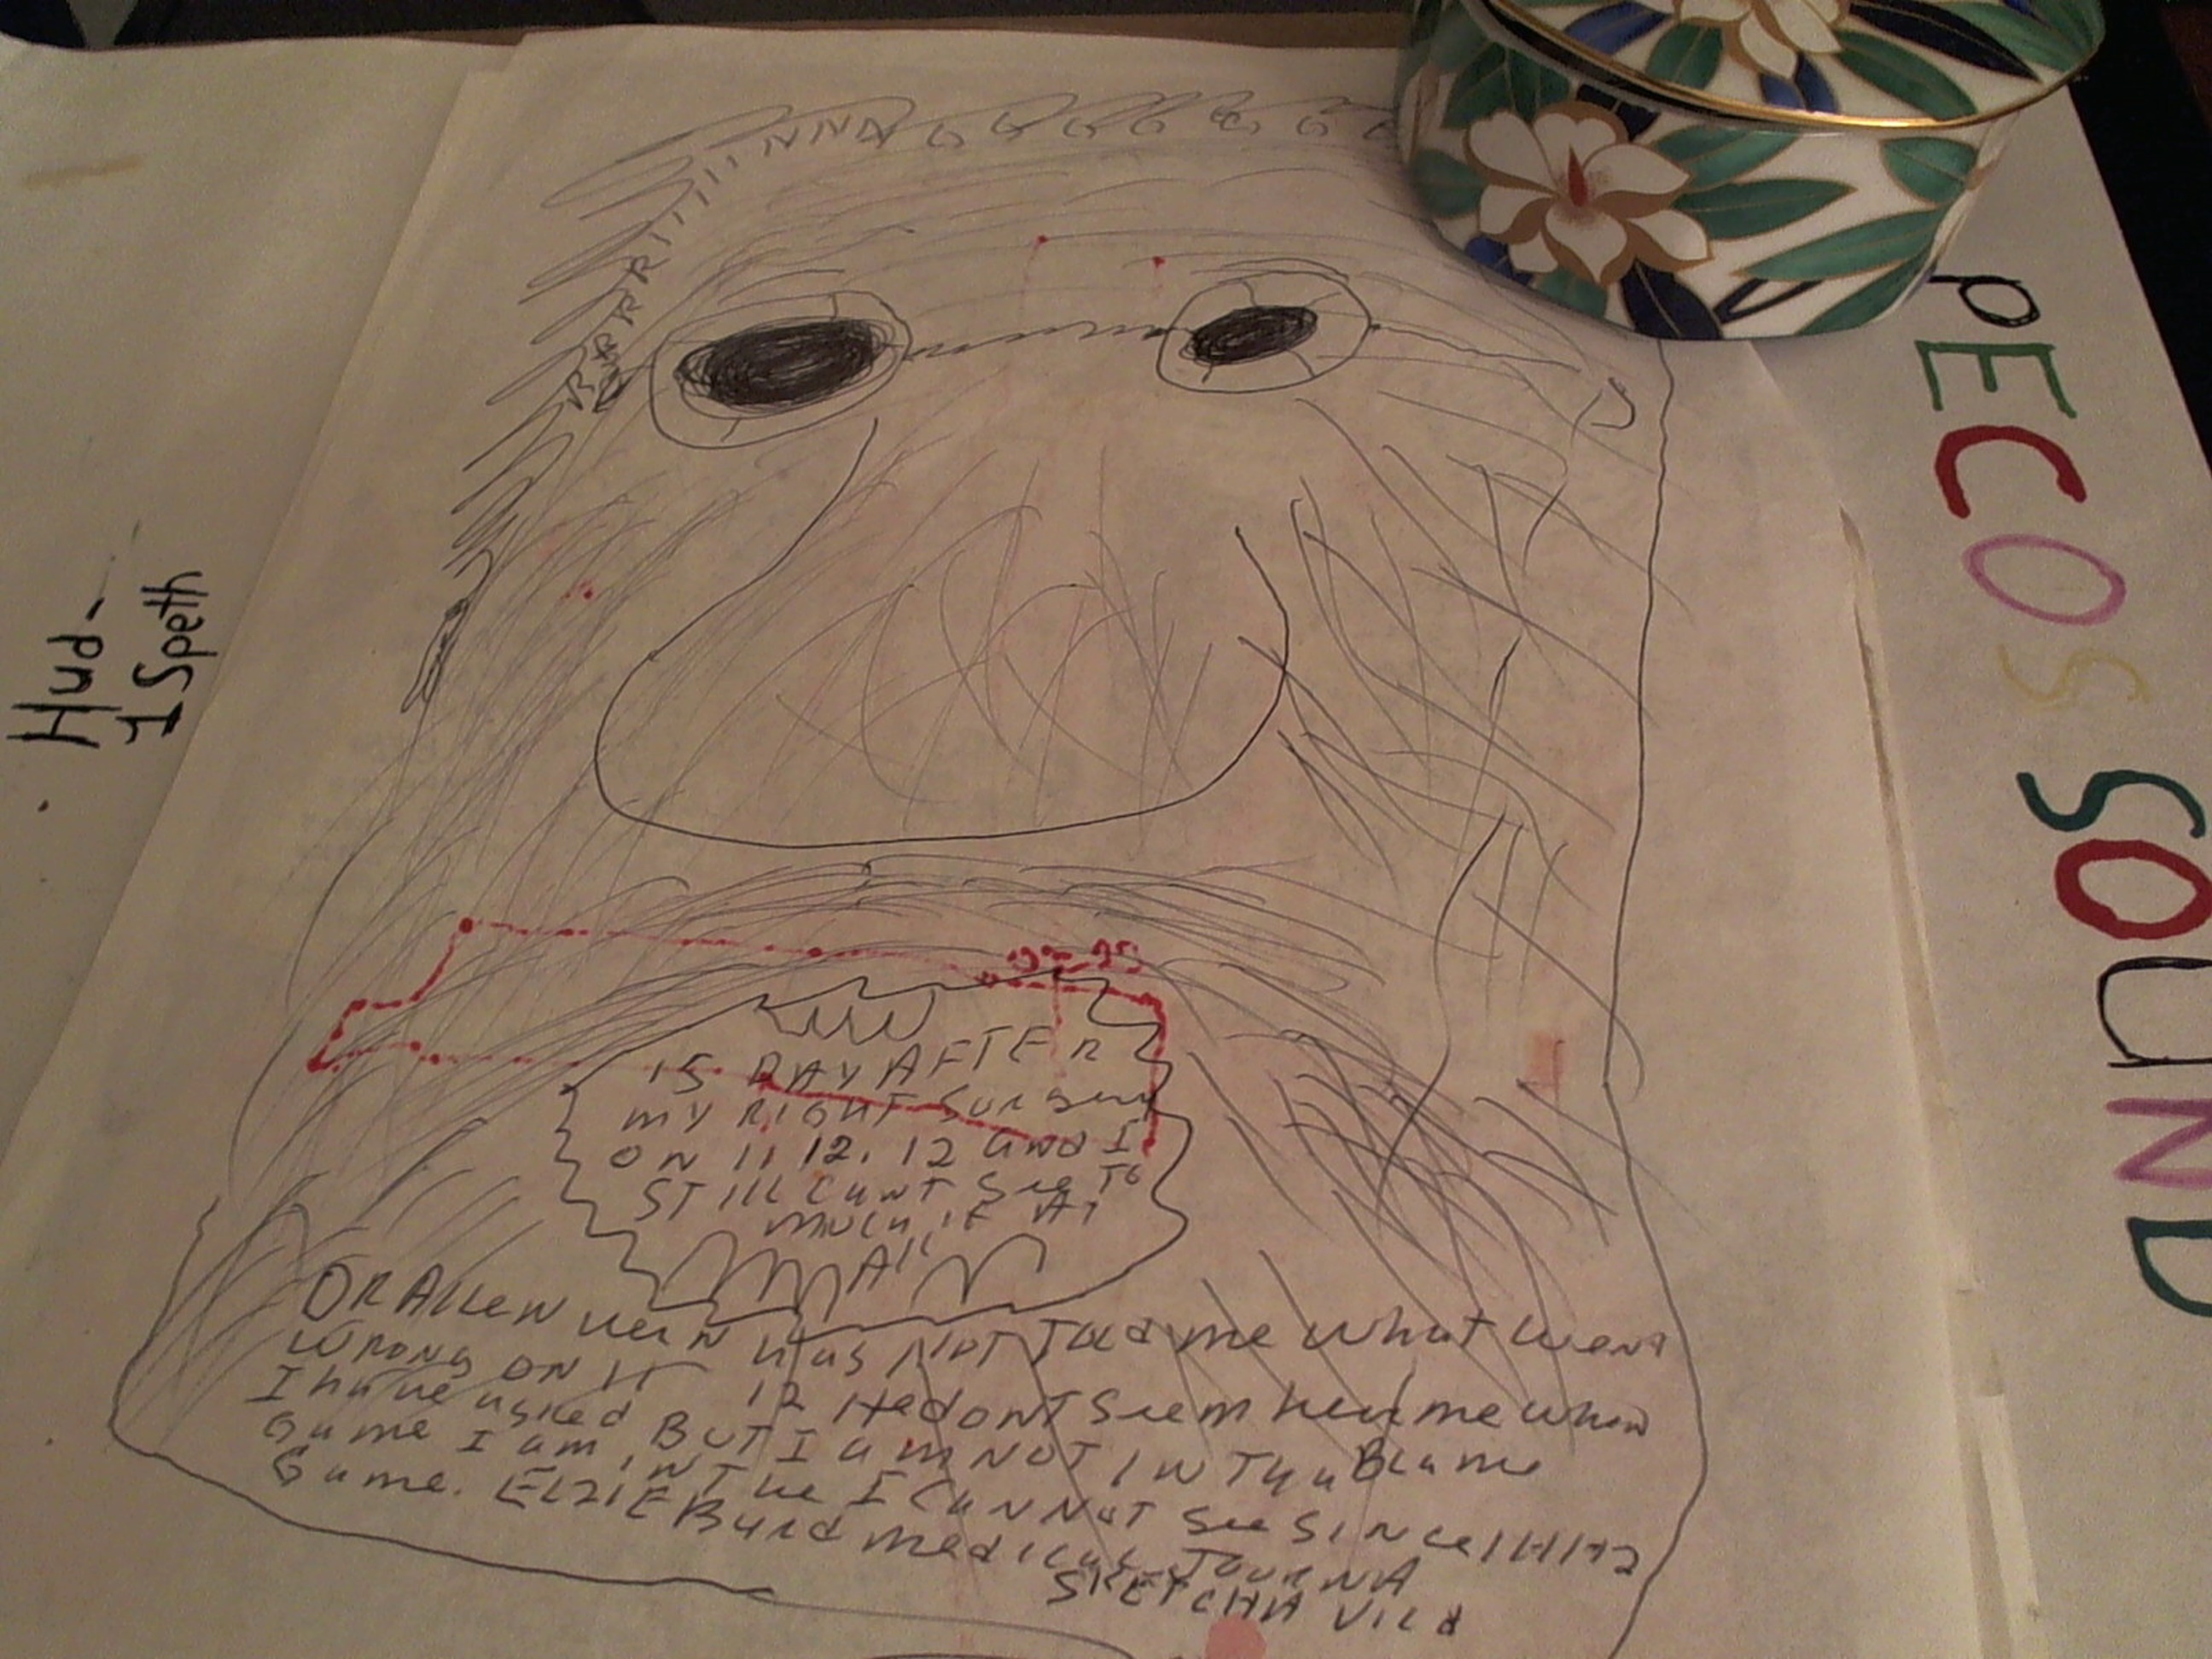 Hud-
1 Speth
RRRRRIIIIIINNNGGGGGGG
PECOS SOUND
15 DAY AFTER
MY RIGHT SURgery
ON 11 12. 12 and I
STill CanT See To
much, IF AT
All
DR Allen has NOT Told me whaT wenT
wrong ON 11 12 He donT Seem hear me when
I have asked BUT I am NOT IN The Blame
Game I am IN The I CaNNoT See SINce 11 1112
Game. ELZIE Medical JOURNA
SKETCH